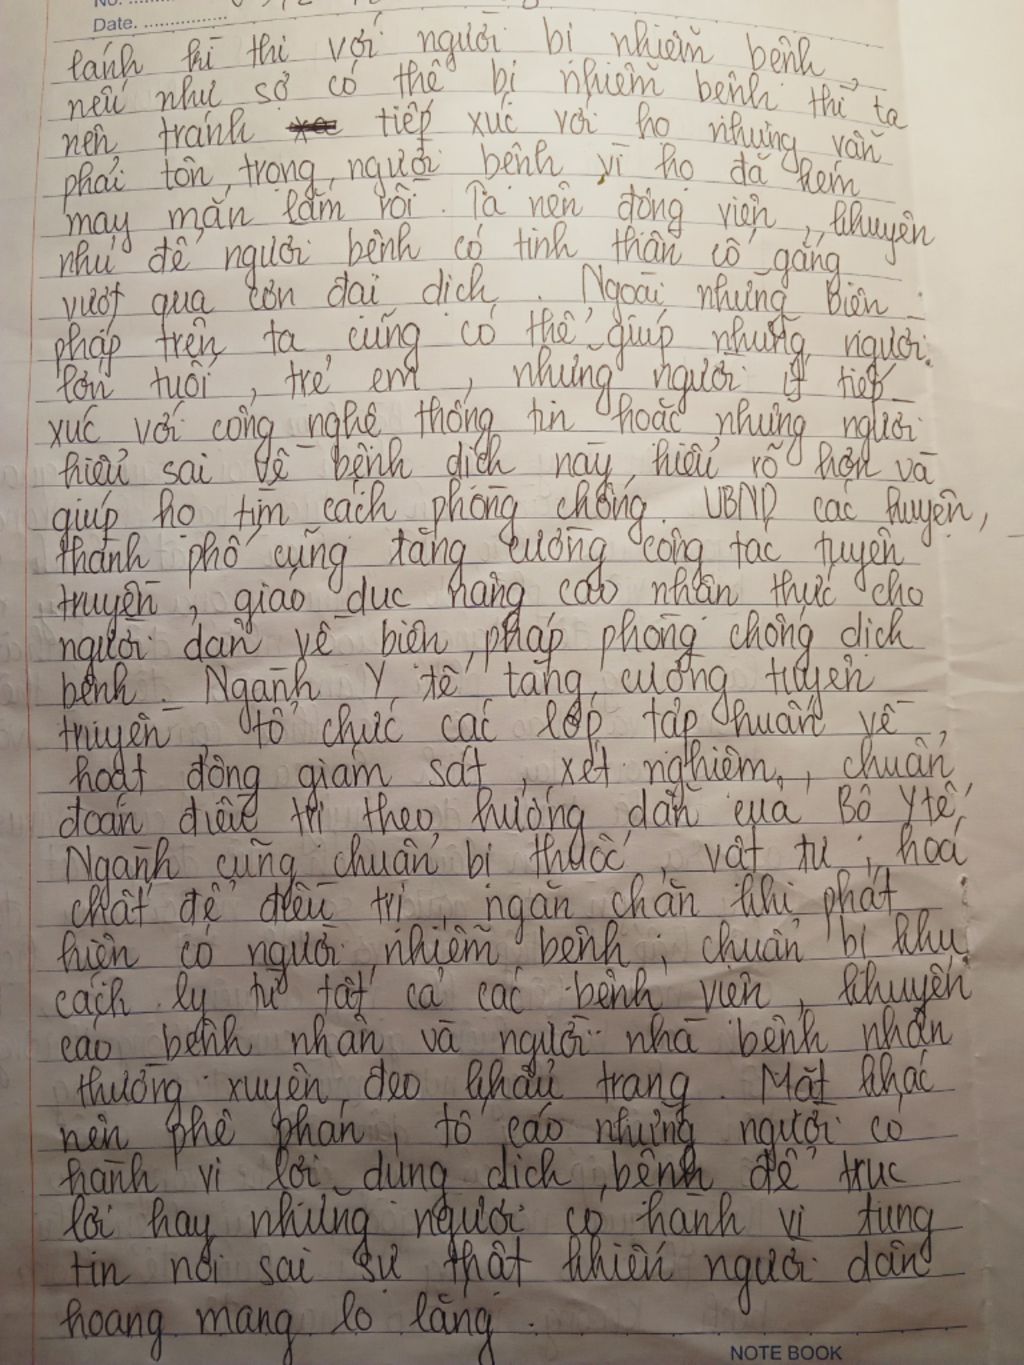 No. ............
Date. ................
lánh kì thị với người bị nhiễm bệnh,
nếu như sợ có thể bị nhiễm bệnh thì ta
nên tránh tiếp xúc với họ nhưng vẫn
phải tôn trọng người bệnh vì họ đã kém
may mắn lắm rồi. Ta nên động viên, khuyên
nhủ để người bệnh có tinh thần cố gắng
vượt qua cơn đại dịch. Ngoài những biện
pháp trên ta cũng có thể giúp những người
lớn tuổi, trẻ em, những người ít tiếp
xúc với công nghệ thông tin hoặc những người
hiểu sai về bệnh dịch này hiểu rõ hơn và
giúp họ tìm cách phòng chống. UBND các huyện,
thành phố cũng tăng cường công tác tuyên
truyền, giáo dục nâng cao nhận thức cho
người dân về biện pháp phòng chống dịch
bệnh. Ngành Y tế tăng cường tuyên
truyền, tổ chức các lớp tập huấn về,
hoạt động giám sát, xét nghiệm, chuẩn
đoán điều trị theo hướng dẫn của Bộ Y tế,
Ngành cũng chuẩn bị thuốc, vật tư, hoá
chất để điều trị, ngăn chặn khi phát
hiện có người nhiễm bệnh, chuẩn bị khu
cách ly từ tất cả các bệnh viện, khuyến
cáo bệnh nhân và người nhà bệnh nhân
thường xuyên đeo khẩu trang. Mặt khác
nên phê phán, tố cáo những người có
hành vi lợi dụng dịch bệnh để trục
lợi hay những người có hành vi tung
tin nói sai sự thật khiến người dân
hoang mang lo lắng.
NOTE BOOK